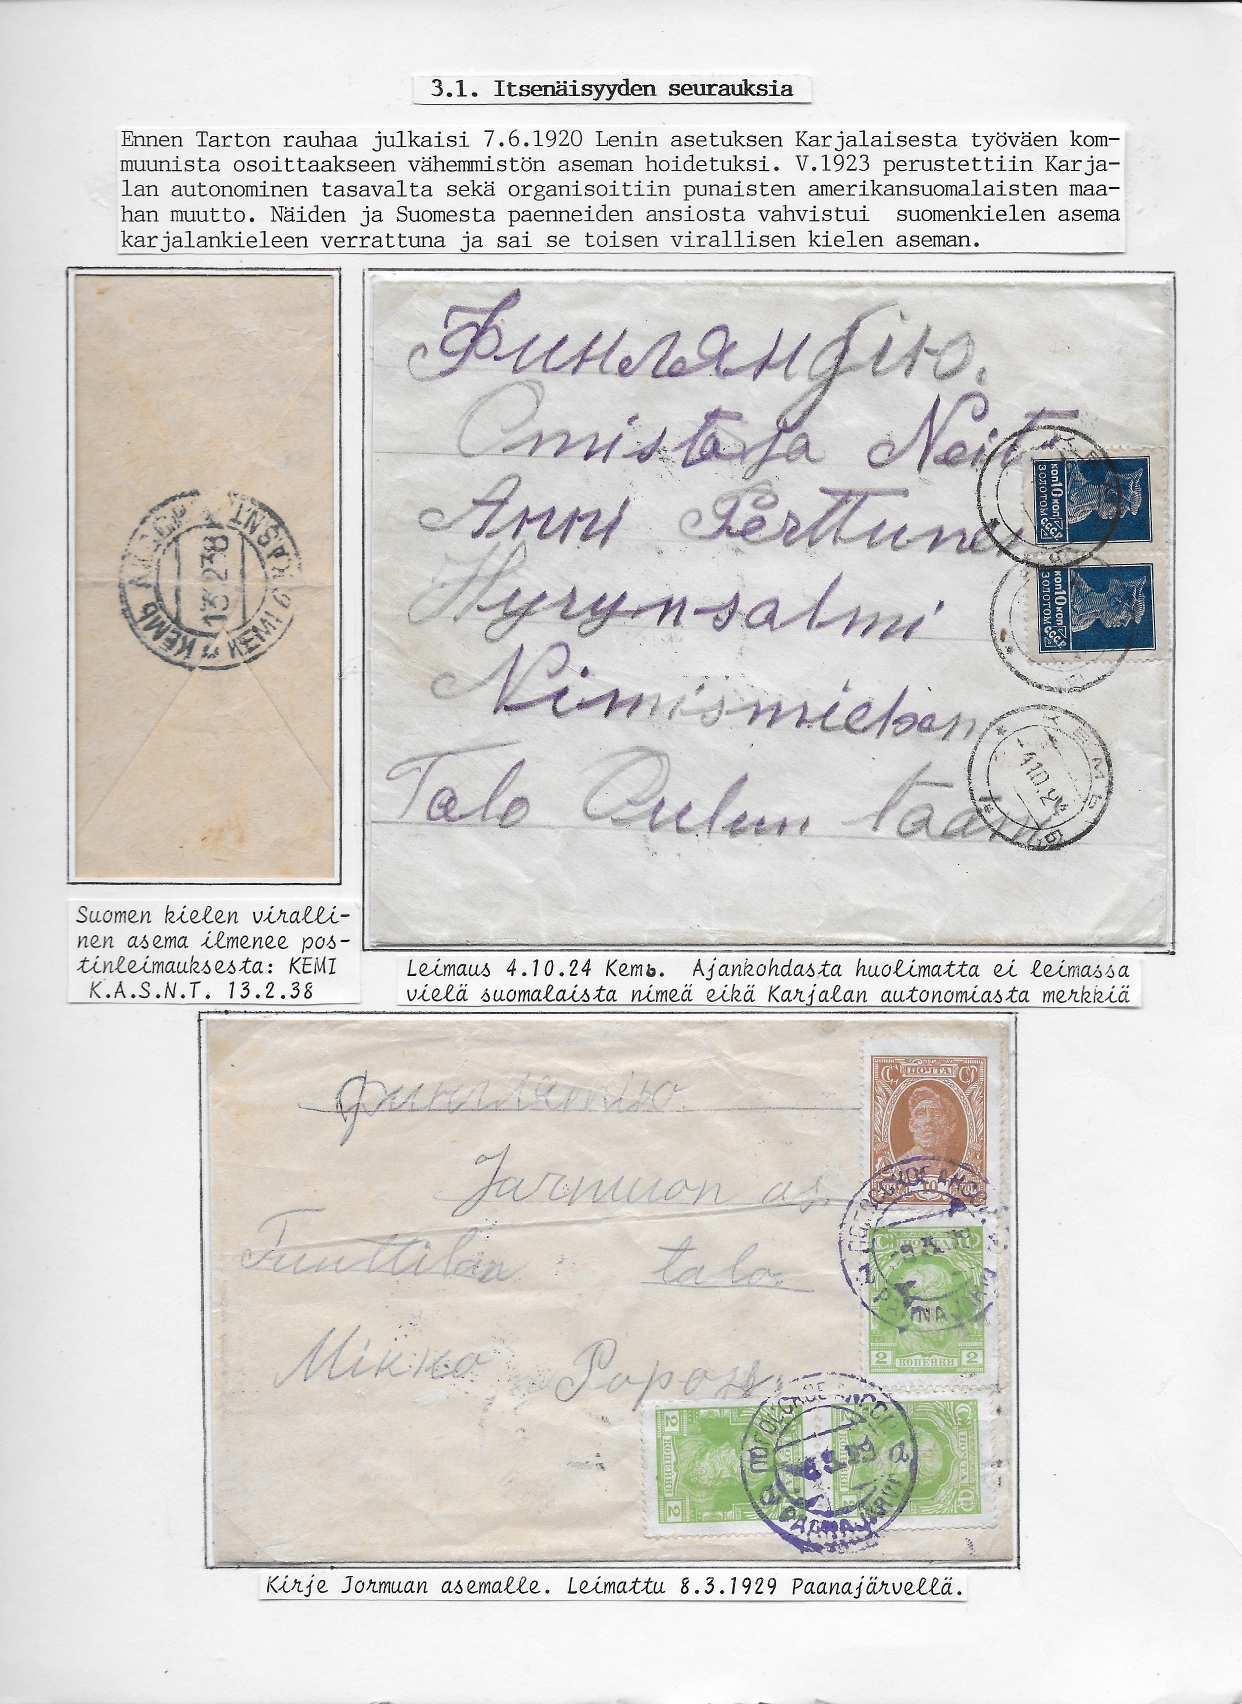 3.1. Itsenäisyyden seurauksia
Ennen Tarton rauhaa julkaisi 7.6.1920 Lenin asetuksen Karjalaisesta työväen kom-
muunista osoittaakseen vähemmistön aseman hoidetuksi. V.1923 perustettiin Karja-
lan autonominen tasavalta sekä organisoitiin punaisten amerikansuomalaisten maa-
han muutto. Näiden ja Suomesta paenneiden ansiosta vahvistui suomenkielen asema
karjalankieleen verrattuna ja sai se toisen virallisen kielen aseman.
13 2 38
КЕМЬ
KEMI
Финляндию.
Omistaja Neiti
Anni Perttunen
Hyrynsalmi
Nimismiehen
Talo Oulun Lääni
КОП 10 КОП
ЗОЛОТОМ
СССР
КОП 10 КОП
ЗОЛОТОМ
СССР
КЕМЬ
4.10.24
Suomen kielen viralli-
nen asema ilmenee pos-
tinleimauksesta: KEMI
K.A.S.N.T. 13.2.38
Leimaus 4.10.24 Кемь. Ajankohdasta huolimatta ei leimassa
vielä suomalaista nimeä eikä Karjalan autonomiasta merkkiä
ПОЧТА
Jormuon as.
talo
Mikko
2 КОПЕЙКИ 2
2
2
Kirje Jormuan asemalle. Leimattu 8.3.1929 Paanajärvellä.